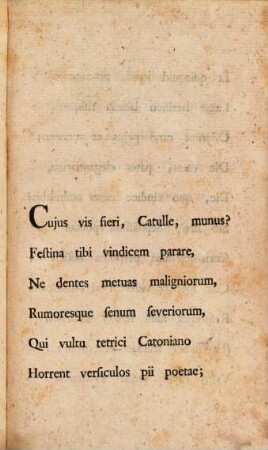 Cujus vis fieri, Catulle, munus?
Festina tibi vindicem parare,
Ne dentes metuas maligniorum,
Rumoresque senum severiorum,
Qui vultu tetrici Catoniano
Horrent versiculos pii poetae;